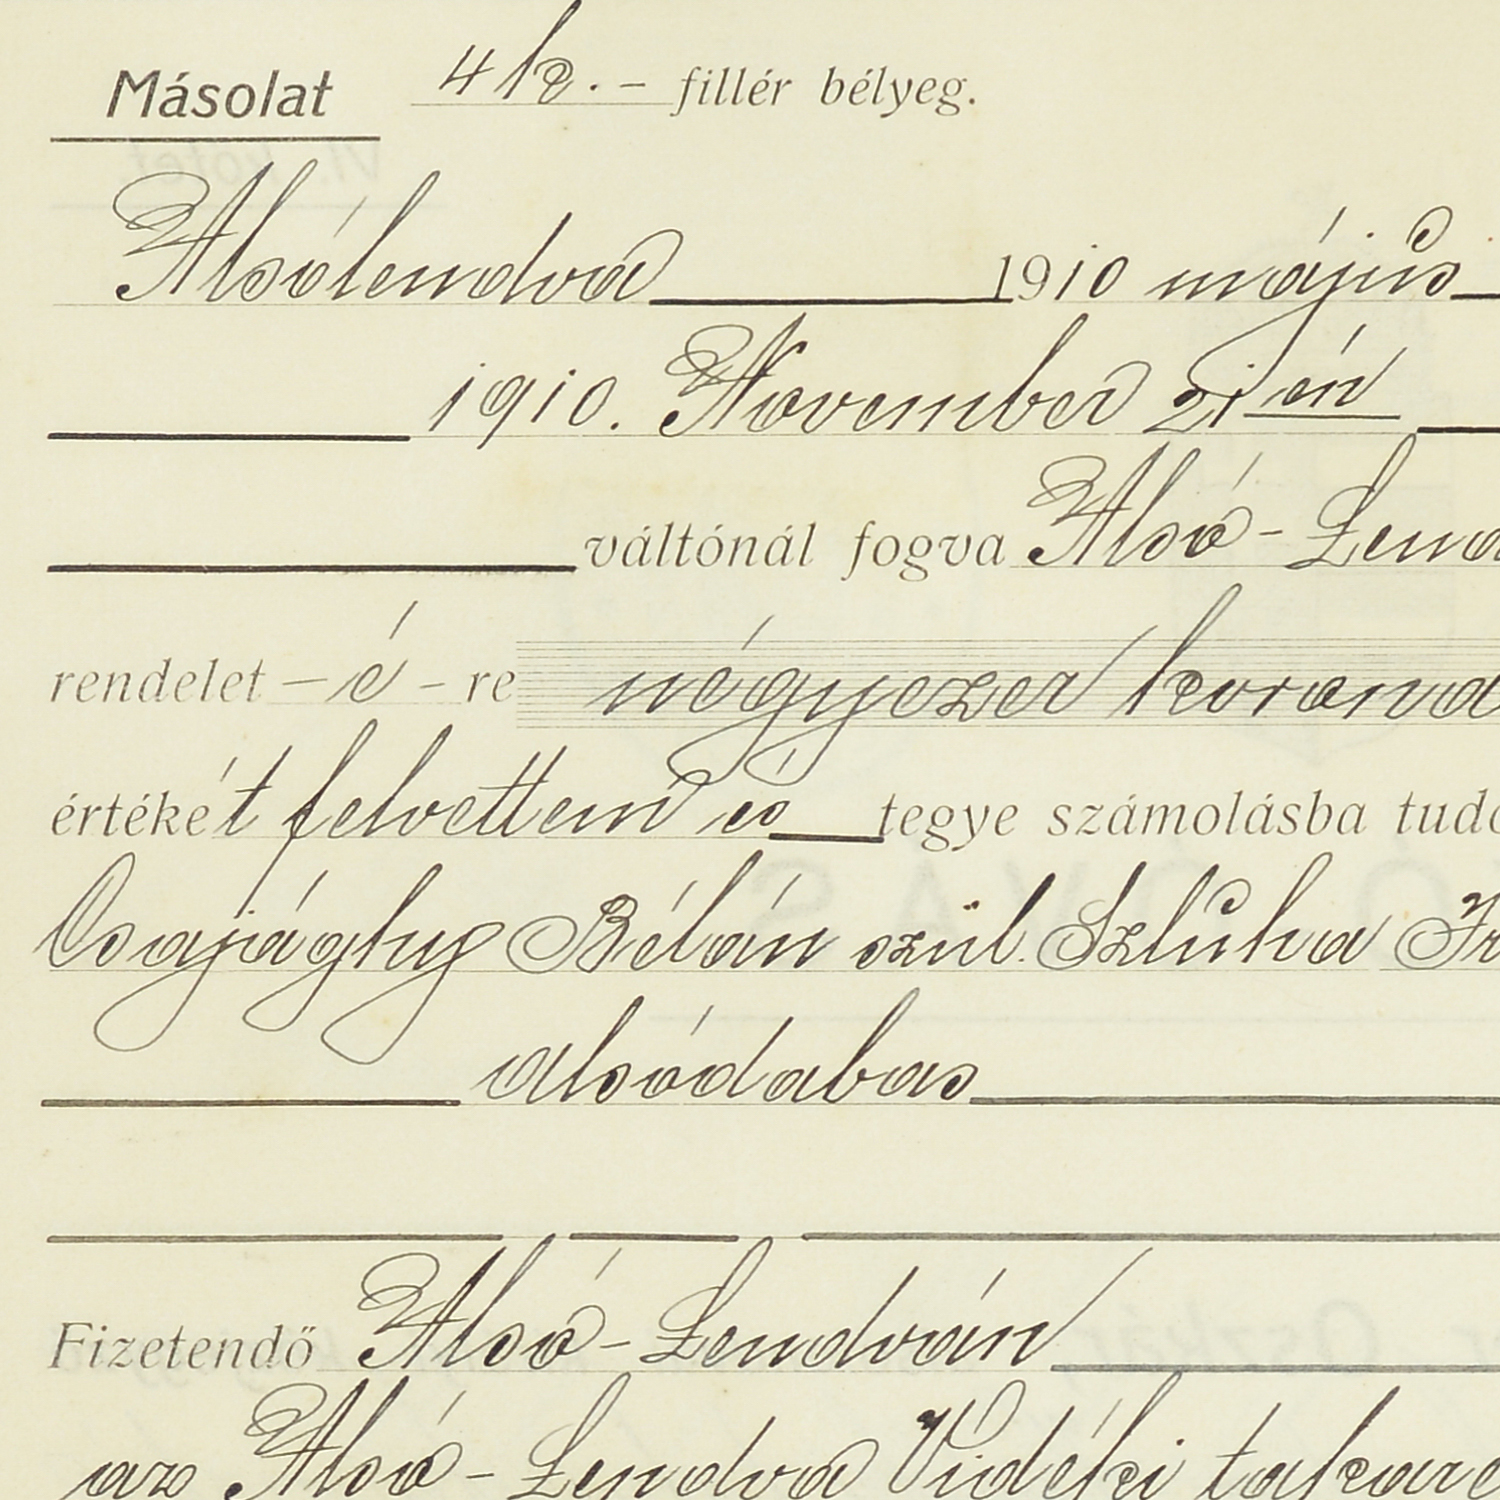 Másolat 4 k. - fillér bélyeg.
Alsólendva 1910 május
1910. November 21 én
váltónál fogva Alsó-Lend
rendelet - é - re négyezer korona
értékét felvettem és tegye számolásba tudó
Csajághy Bélán szül. Szluha Fr
alsódabas
Fizetendő Alsó-Lendván
az Alsó-Lendva Vidéki takaré